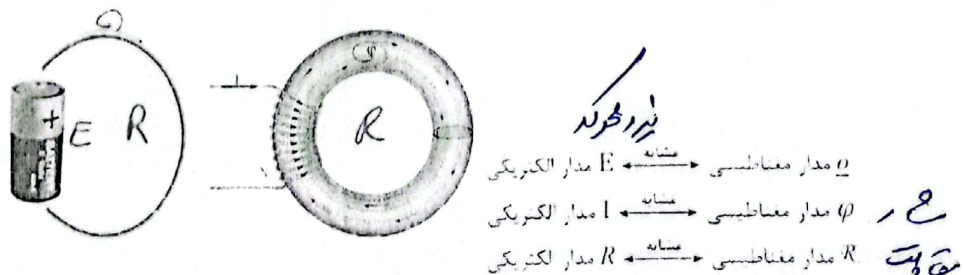 E R
+
φ
R
نیرو محرکه
θ مدار مغناطیسی مشابه E مدار الکتریکی
φ مدار مغناطیسی مشابه I مدار الکتریکی
R مدار مغناطیسی مشابه R مدار لکتریکی